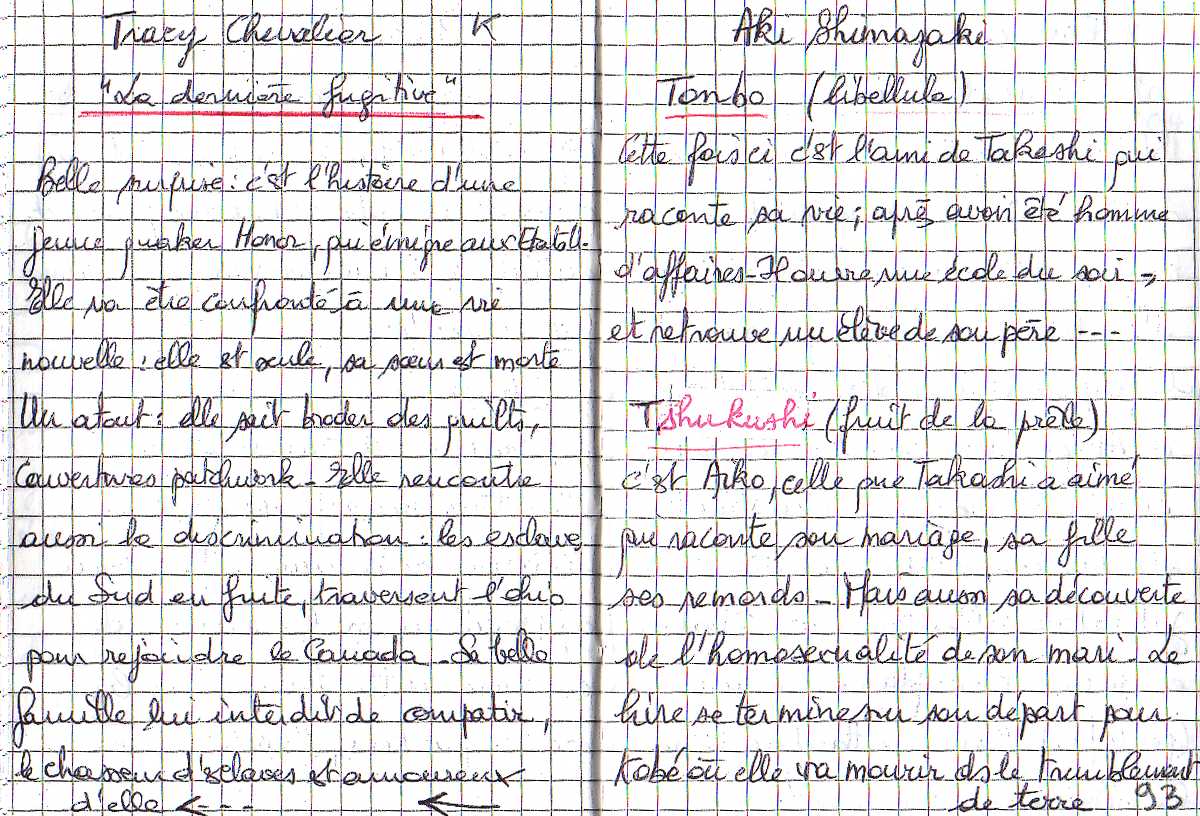 Tracy Chevalier K
"La dernière fugitive"
Belle surprise : c'est l'histoire d'une
jeune quaker Honor, qui émigre aux Etats U.
Elle va être confronté à une vie
nouvelle : elle est seule, sa sœur est morte
Un atout : elle sait broder des quilts,
couvertures patchwork - Elle rencontre
aussi la discrimination : les esclaves
du Sud en fuite, traversent l'Ohio
pour rejoindre le Canada - Sa belle
famille lui interdit de compatir,
le chasseur d'esclaves est amoureux
d'elle <--- ←
Aki Shimazaki
Tonbo (libellule)
Cette fois ci c'est l'ami de Takashi qui
raconte sa vie ; après avoir été homme
d'affaires - Il ouvre une école du soir,
et retrouve un élève de son père ---
Tshukushi (fruit de la prèle)
c'est Aiko, celle que Takashi a aimé
qui raconte son mariage, sa fille
ses remords - Mais aussi sa découverte
de l'homosexualité de son mari - Le
livre se termine sur son départ pour
Kobé où elle va mourir ds le tremblement
de terre 93